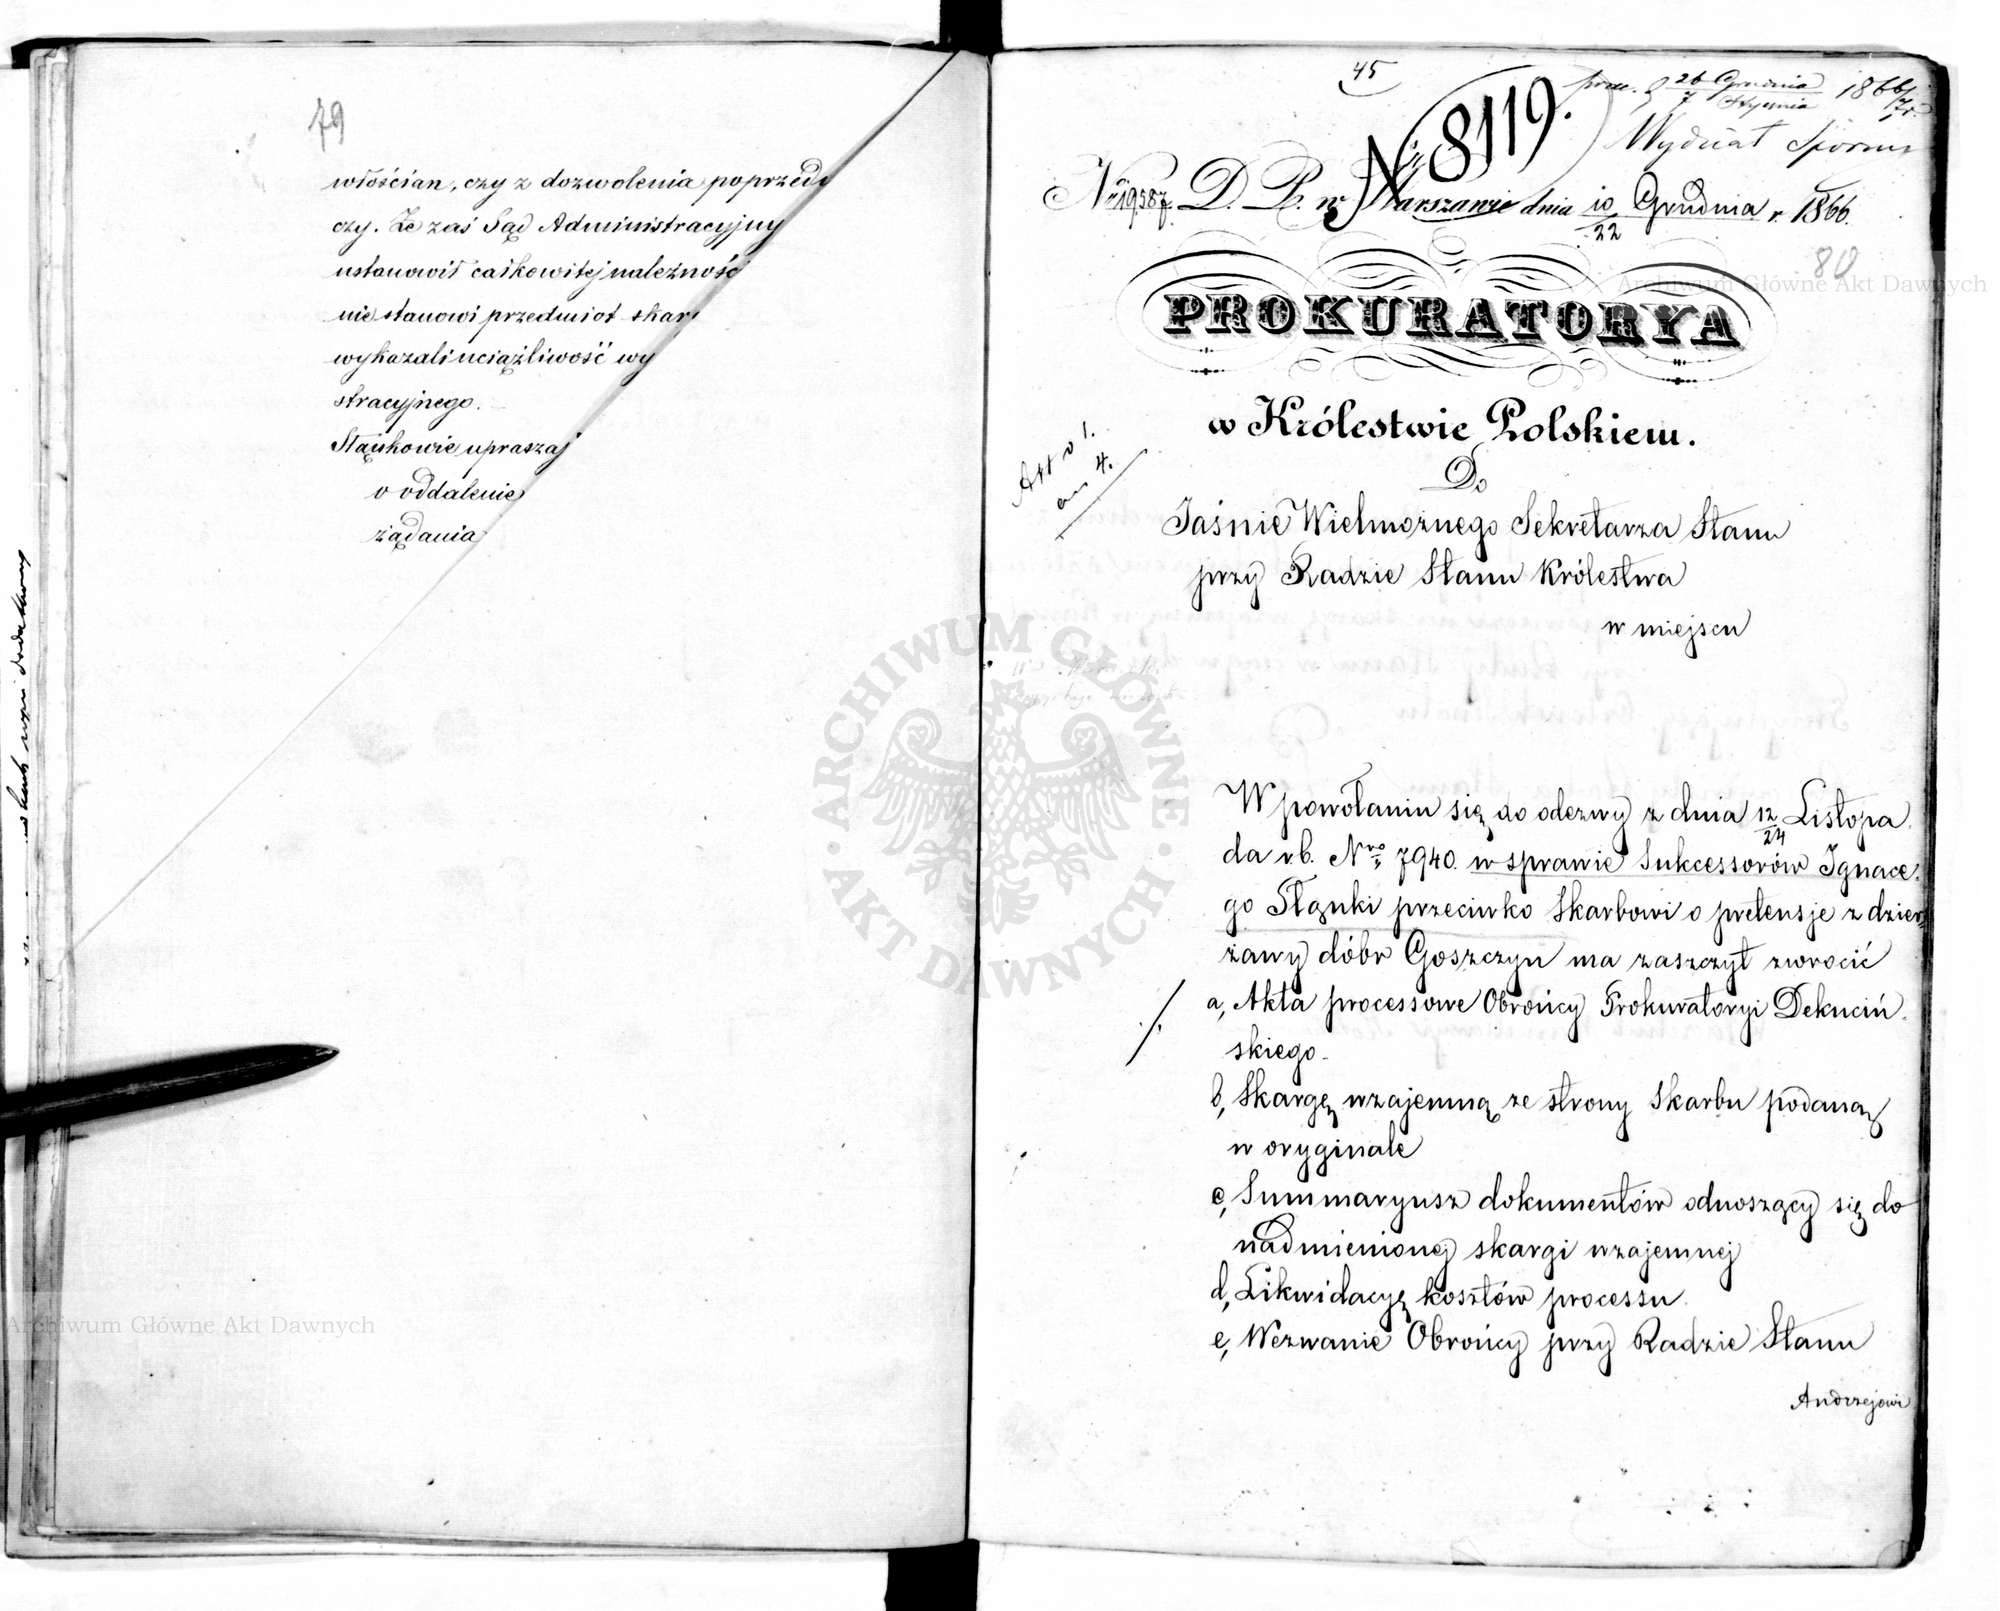 79
włościan, czy z dozwolenia poprzed
czy. Że zaś Sąd Administracyjny
ustanowił całkowitej należnoś
nie stanowi przedmiot skar
wykazali uciążliwość wy
stracyjnego.
Stąnkowie upraszaj
o oddalenie
żądania
45
prez. d 26 Grudnia / 7 Stycznia 1866/7 r.
Wydział Sporny
N 8119.
Nr 19587 D. P. w Warszawie dnia 10/22 Grudnia r. 1866.
80
PROKURATORYA
w Królestwie Polskiem.
Do
Jaśnie Wielmożnego Sekretarza Stanu
przy Radzie Stanu Królestwa
w miejscu
W powołaniu się do odezwy z dnia 12/24 Listopa
da r.b. Nro 7940. w sprawie Sukcessorów Ignace
go Stąnki przeciwko Skarbowi o pretensje z dzier
żawy dóbr Goszczyn ma zaszczyt zwrócić
a, Akta processowe Obrońcy Prokuratoryi Dekuciń
skiego
b, Skargę wzajemną ze strony Skarbu podaną
w oryginale
c, Summaryusz dokumentów odnoszący się do
nadmienionej skargi wzajemnej
d, Likwidacyę kosztów processu
e, Wezwanie Obrońcy przy Radzie Stanu
Andrzejowi
ARCHIWUM GŁÓWNE AKT DAWNYCH
Archiwum Główne Akt Dawnych
Archiwum Główne Akt Dawnych